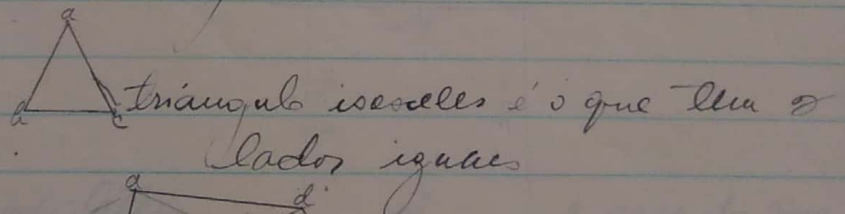 a
a c triángulo isosceles é o que tem 2
lados iguaes
a d